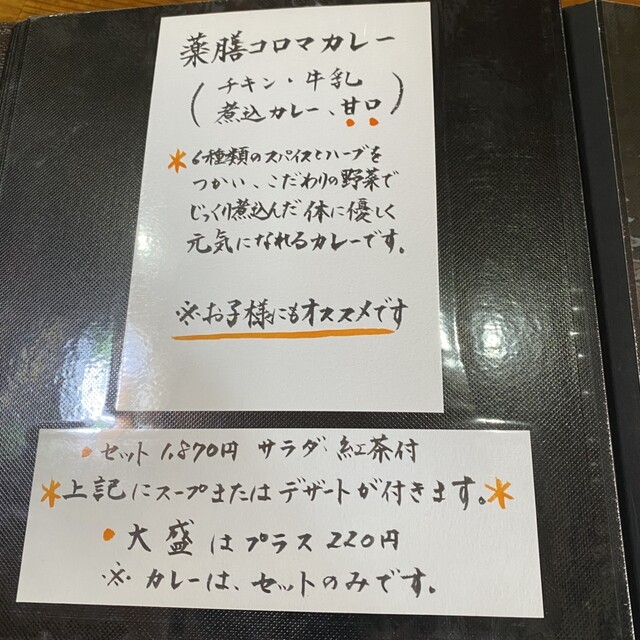 薬膳コロマカレー
(チキン・牛乳
煮込カレー、甘口)
*6種類のスパイスとハーブを
つかい、こだわりの野菜で
じっくり煮込んだ体に優しく
元気になれるカレーです。
※お子様にもオススメです
•セット 1,870円 サラダ・紅茶付
*上記にスープまたはデザートが付きます。*
•大盛はプラス220円
※カレーは、セットのみです。